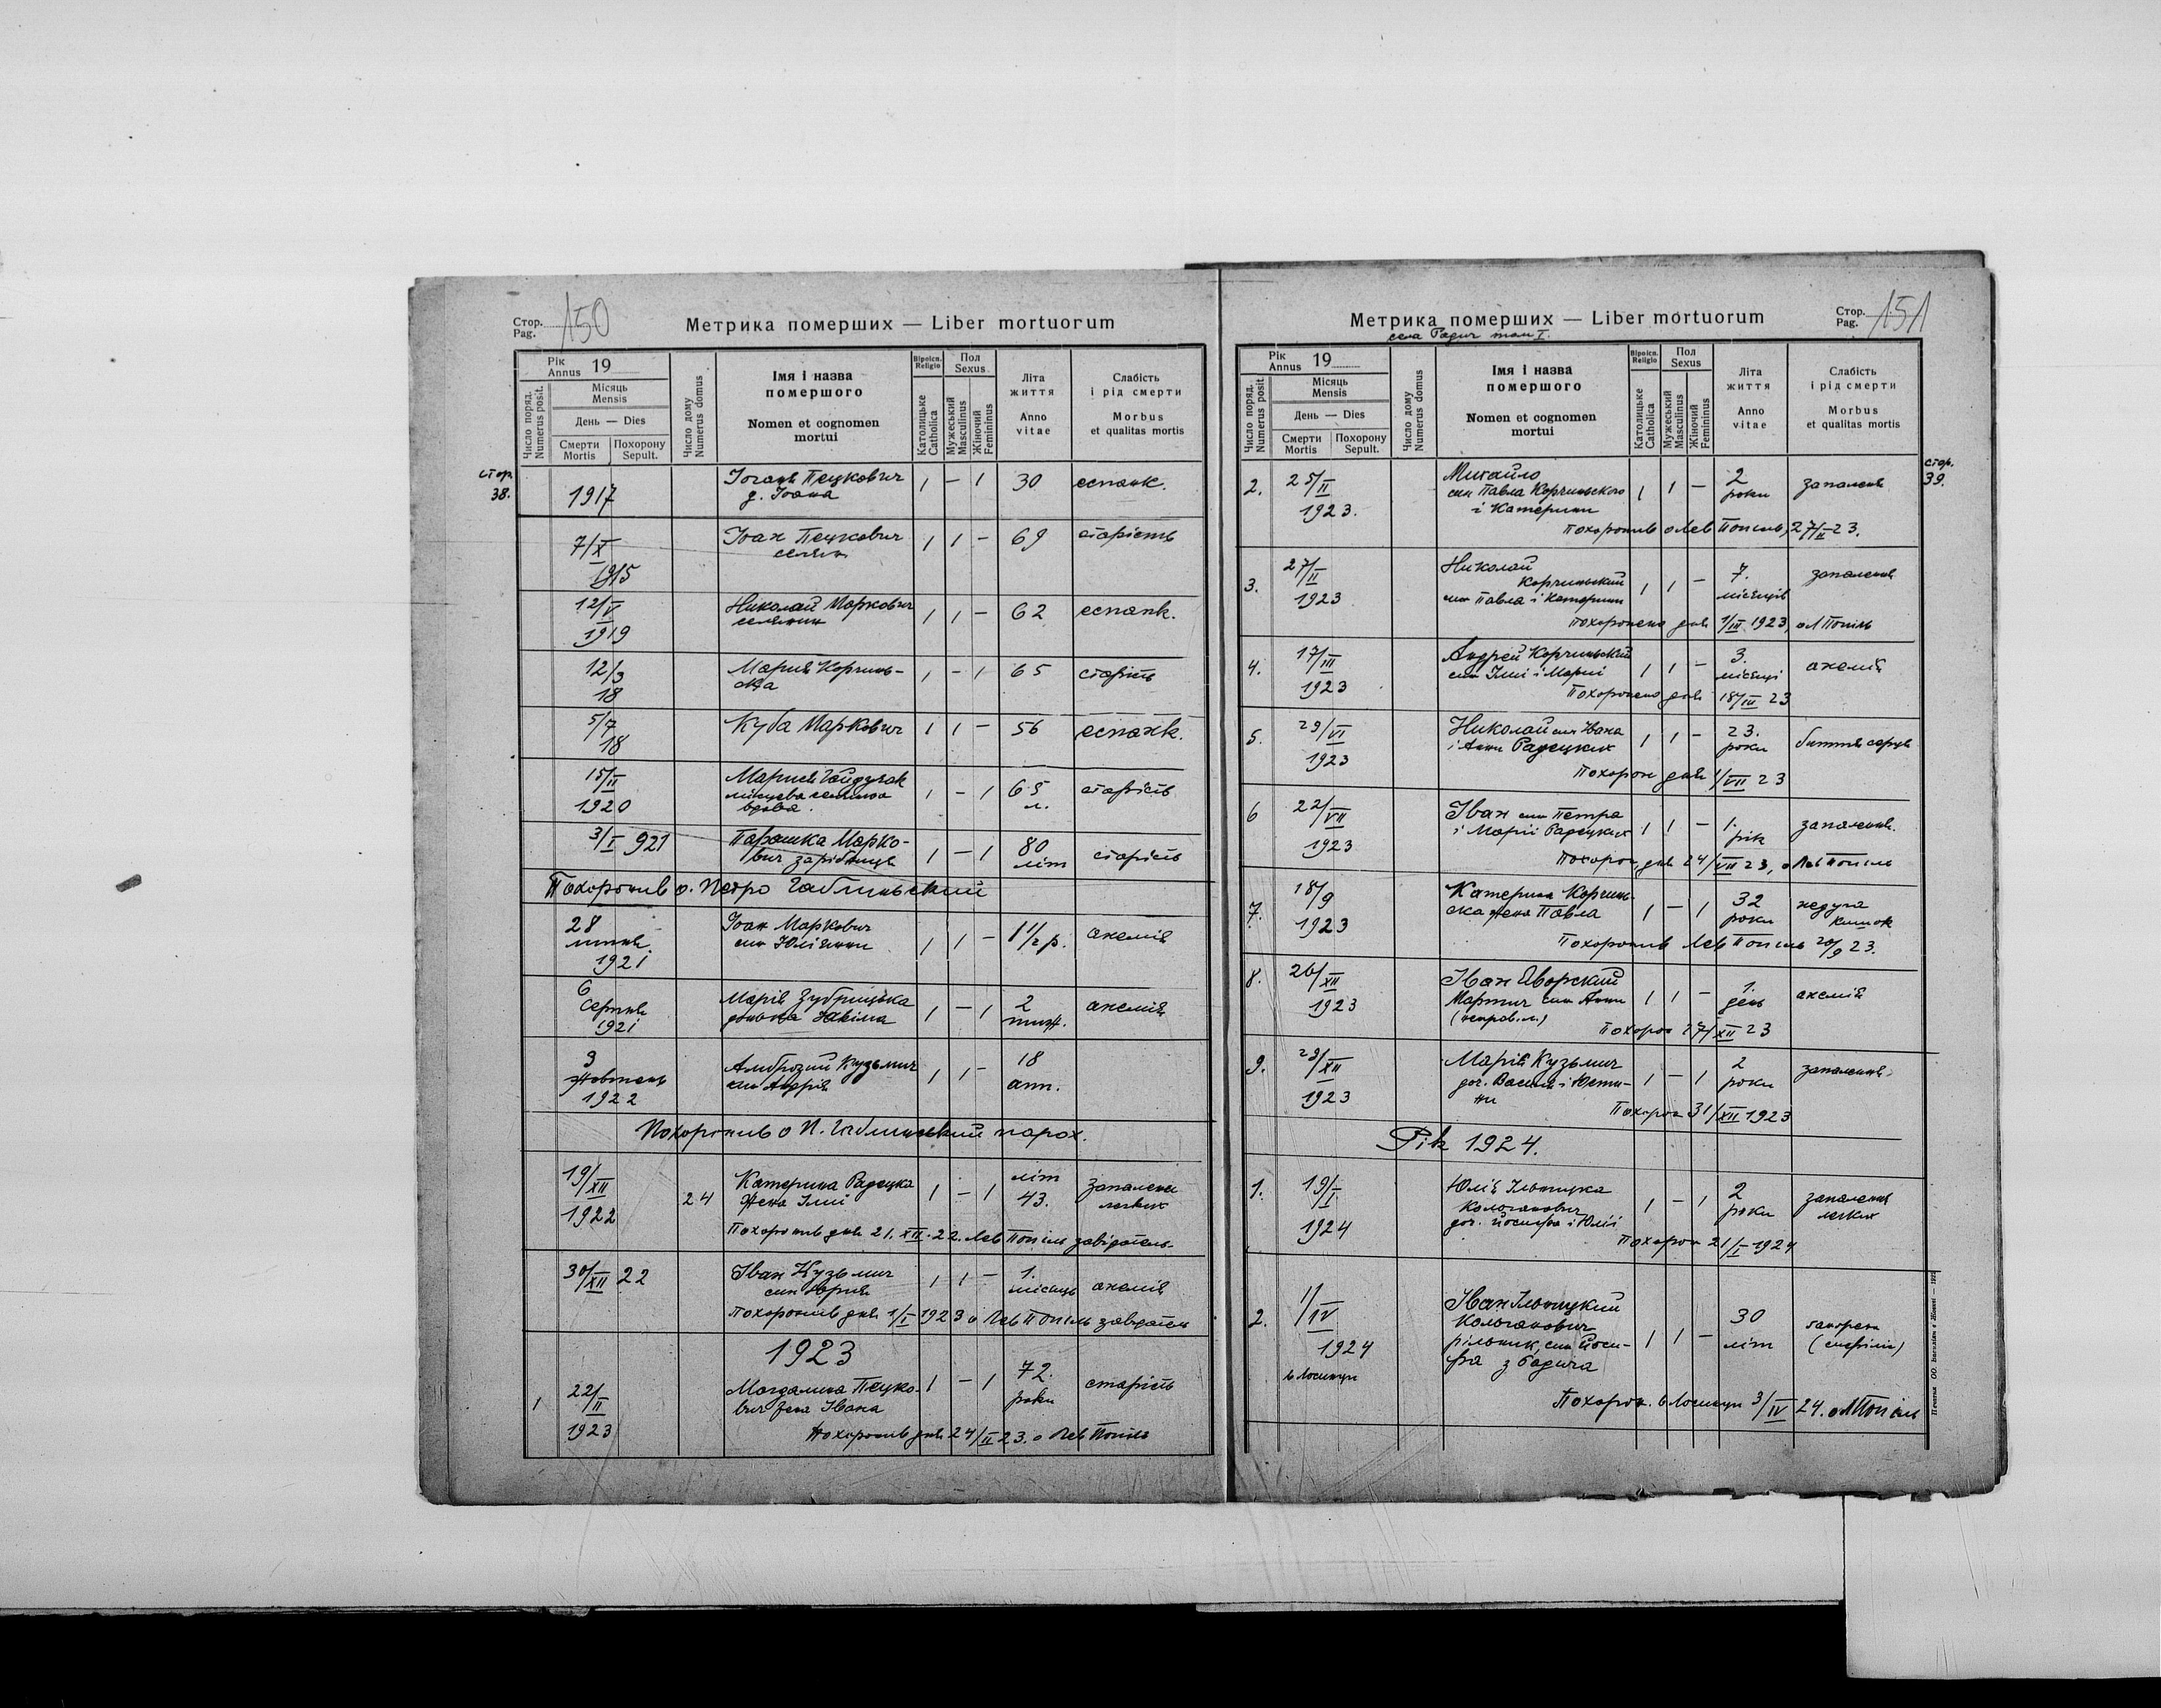 Стор. 150
Pag.
Метрика померших — Liber mortuorum
Рік 19
Annus
Число поряд.
Numerus posit.
Місяць
Mensis
День — Dies
Смерти Похорону
Mortis Sepult.
Число дому
Numerus domus
Імя і назва
помершого
Nomen et cognomen
mortui
Віроісп.
Religio
Католицьке
Catholica
Пол
Sexus
Мужеський
Masculinus
Жіночий
Femininus
Літа
життя
Anno
vitae
Слабість
і рід смерти
Morbus
et qualitas mortis
стор.
38.
1917 Пецкович 1 — 1 30 еспанк.
д. Іоана
7/X Іоан Пецкович 1 1 — 69 старість
1915
12/V Николай Маркович 1 1 — 62 еспанк.
1919 селянин
12/3 Мария Корчинь- 1 — 1 65 старість
18 ска
5/7 Куба Маркович 1 1 — 56 еспанк.
18
15/II Мария Гайдучак 1 — 1 65 старість
1920 л.
вдова.
3/I 921 Парашка Марко- 1 — 1 80 старість
вич зарібниця літ
Похоронив о. Петро Габлиньский
28 Іоан Маркович 1 1 — 1 1/2 р. анемія
липня син Юліянни
1921
6 Марія Зубрицька 1 — 1 2 анемія
серпня донька Якима тиж.
1921
9 Амброзий Кузьмич 1 1 — 18
жовтень син Андрія ann.
1922
Похоронив о П. Габлинський парох.
19/XII 24 Катерина Радецка 1 — 1 літ запаленє
1922 жена Ілії 43. легких
Похоронив дня 21. XII. 22. Лев Попель завідатель
30/XII 22 Іван Кузьмич 1 1 — 1. анемія
син Юрия місяць
Похоронив дня 1/I 1923 о Лев Попель завідатель
1923
1 22/II Магдалина Пецко- 1 — 1 72. старість
1923 вич жена Івана роки
Похоронив дня 24/II 23. о Лев Попель
Метрика померших — Liber mortuorum
села Радич том I.
Стор. 151
Pag.
Рік 19
Annus
Число поряд.
Numerus posit.
Місяць
Mensis
День — Dies
Смерти Похорону
Mortis Sepult.
Число дому
Numerus domus
Імя і назва
помершого
Nomen et cognomen
mortui
Віроісп.
Religio
Католицьке
Catholica
Пол
Sexus
Мужеський
Masculinus
Жіночий
Femininus
Літа
життя
Anno
vitae
Слабість
і рід смерти
Morbus
et qualitas mortis
стор.
39.
2. 25/II Михайло 1 1 — 2 запаленя
1923. син Павла Корчиньского роки
і Катерини
Похоронив о Лев Попель, 27/II 23.
3. 27/II Николай 1 1 — 7. запаленя
1923 Корчиньский місяців
син Павла і Катерини
Похоронено дня 1/III 1923, о Л Попель
4. 17/III Андрей Корчиньский 1 1 — 3. анемія
1923 син Ілії і Марії місяці
Похоронено дня 18/III 23
5. 29/VI Николай син Івана 1 1 — 23. биття серця
1923 і Анни Радецких роки
Похорон дня 1/VII 23
6 22/VII Іван син Петра 1 1 — 1. запаленя.
1923 і Марії Радецких рік
Похорон дня 24/VII 23, о Лев Попель
7. 18/9 Катерина Корчинь- 1 — 1 32 недуга
1923 ска жена Павла роки кишок
Похоронив Лев Попель 20/9 23.
8. 26/XII Іван Яворский 1 1 — 1. анемія
1923 Мартич син Анни день
(неправ. л.)
Похорон 27/XII 23
9. 29/XII Марія Кузьмич 1 — 1 2 запаленя
1923 доч. Василя і Юсти- роки
ни
Похорон 31/XII 1923
Рік 1924.
1. 19/I Юлія Ільницка 1 — 1 2 запаленя
1924 роки легких
доч. Йосифа і Юлії
Похорон 21/I 1924
2. 1/IV Іван Ільницкий 1 1 — 30
1924 рільник, син Йоси- літ
фа з Радича
Похорон. в 3/IV 24. о Л Попель